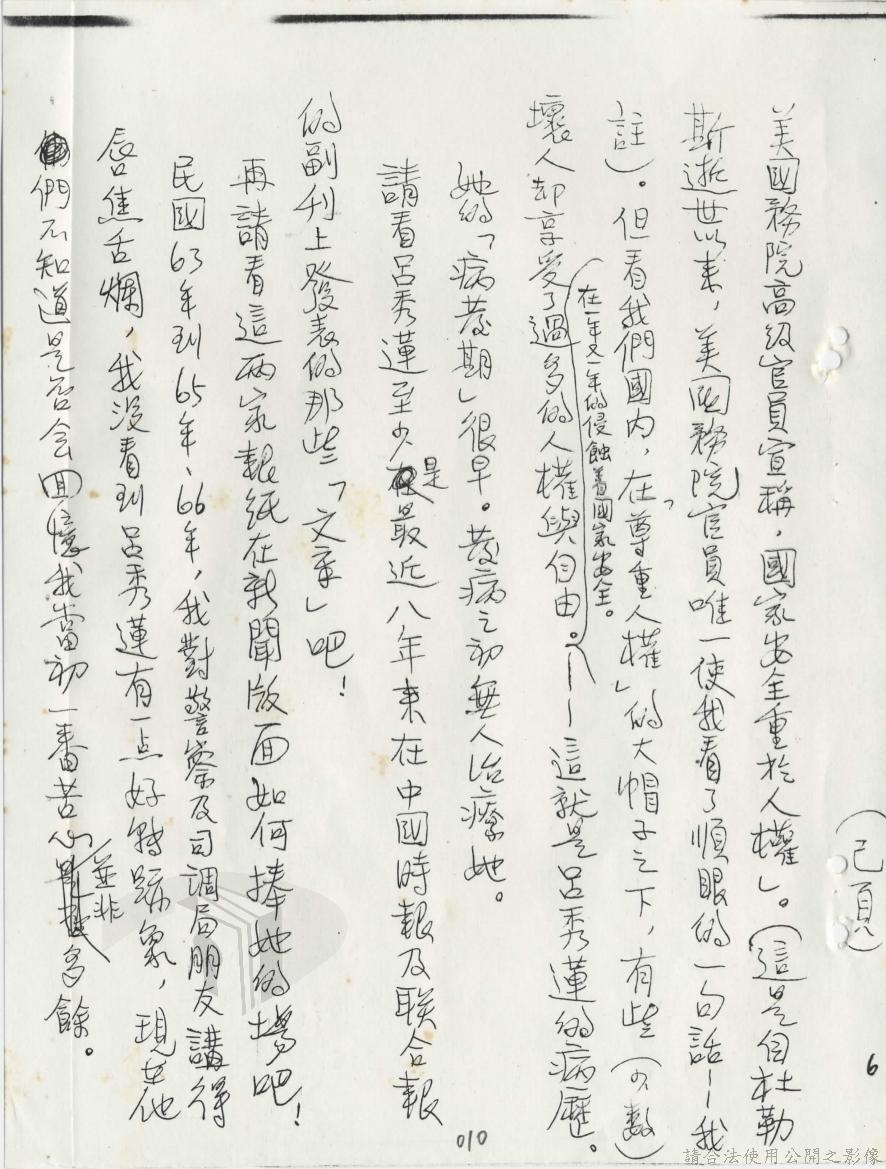 (己頁)
6
美國務院高級官員宣稱,國家安全重於人權」。(這是自杜勒
斯逝世以來,美國務院官員唯一使我看了順眼的一句話——我
註)。但看我們國內,在「尊重人權」的大帽子之下,有些(少數)
在一年又一年的侵蝕著國家安全。
壞人却享受了過多的人權與自由。——這就是呂秀蓮的病歷。
她的「病發期」很早。發病之初無人治療她。
請看呂秀蓮至少是最近八年來在中國時報及联合報
的副刊上發表的那些「文章」吧!
再請看這兩家報紙在新聞版面如何捧她的場吧!
民國63年到65年、66年,我對警察及司調局朋友講得
唇焦舌爛,我没看到呂秀蓮有一点好轉跡象,現在他
們不知道是否會回憶我當初一番苦心並非多餘。
010
請合法使用公開之影像